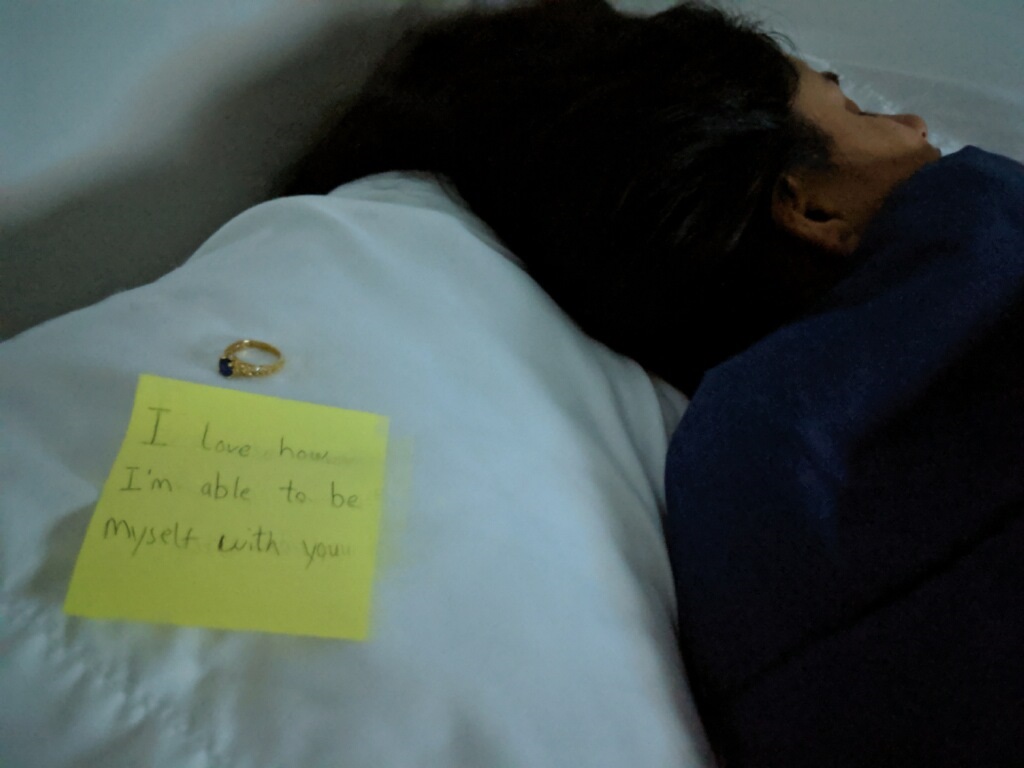 I love how
I'm able to be
myself with you